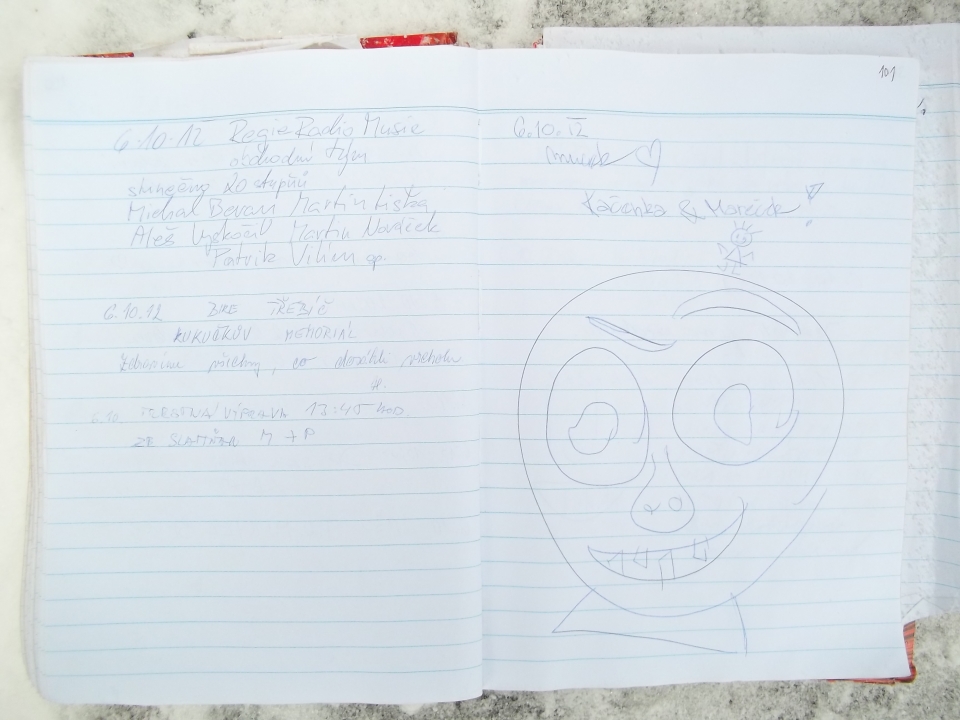 6.10.12 Regie Radio Music
obchodní tým
sluněčno 20 stupňů
Michal Bevan Martin Liška
Aleš Vyskočil Martin Nováček
Patrik Vilím
6.10.12 BIKE TŘEBÍČ
KUKUČKŮV MEMORIÁL
Zdravíme všechny, co dosáhli vrcholu
6.10. TRESTNÁ VÝPRAVA 13:45 HOD.
ZE SLATIŇAN M + P
101
6.10.12
Kačenka & Mareček